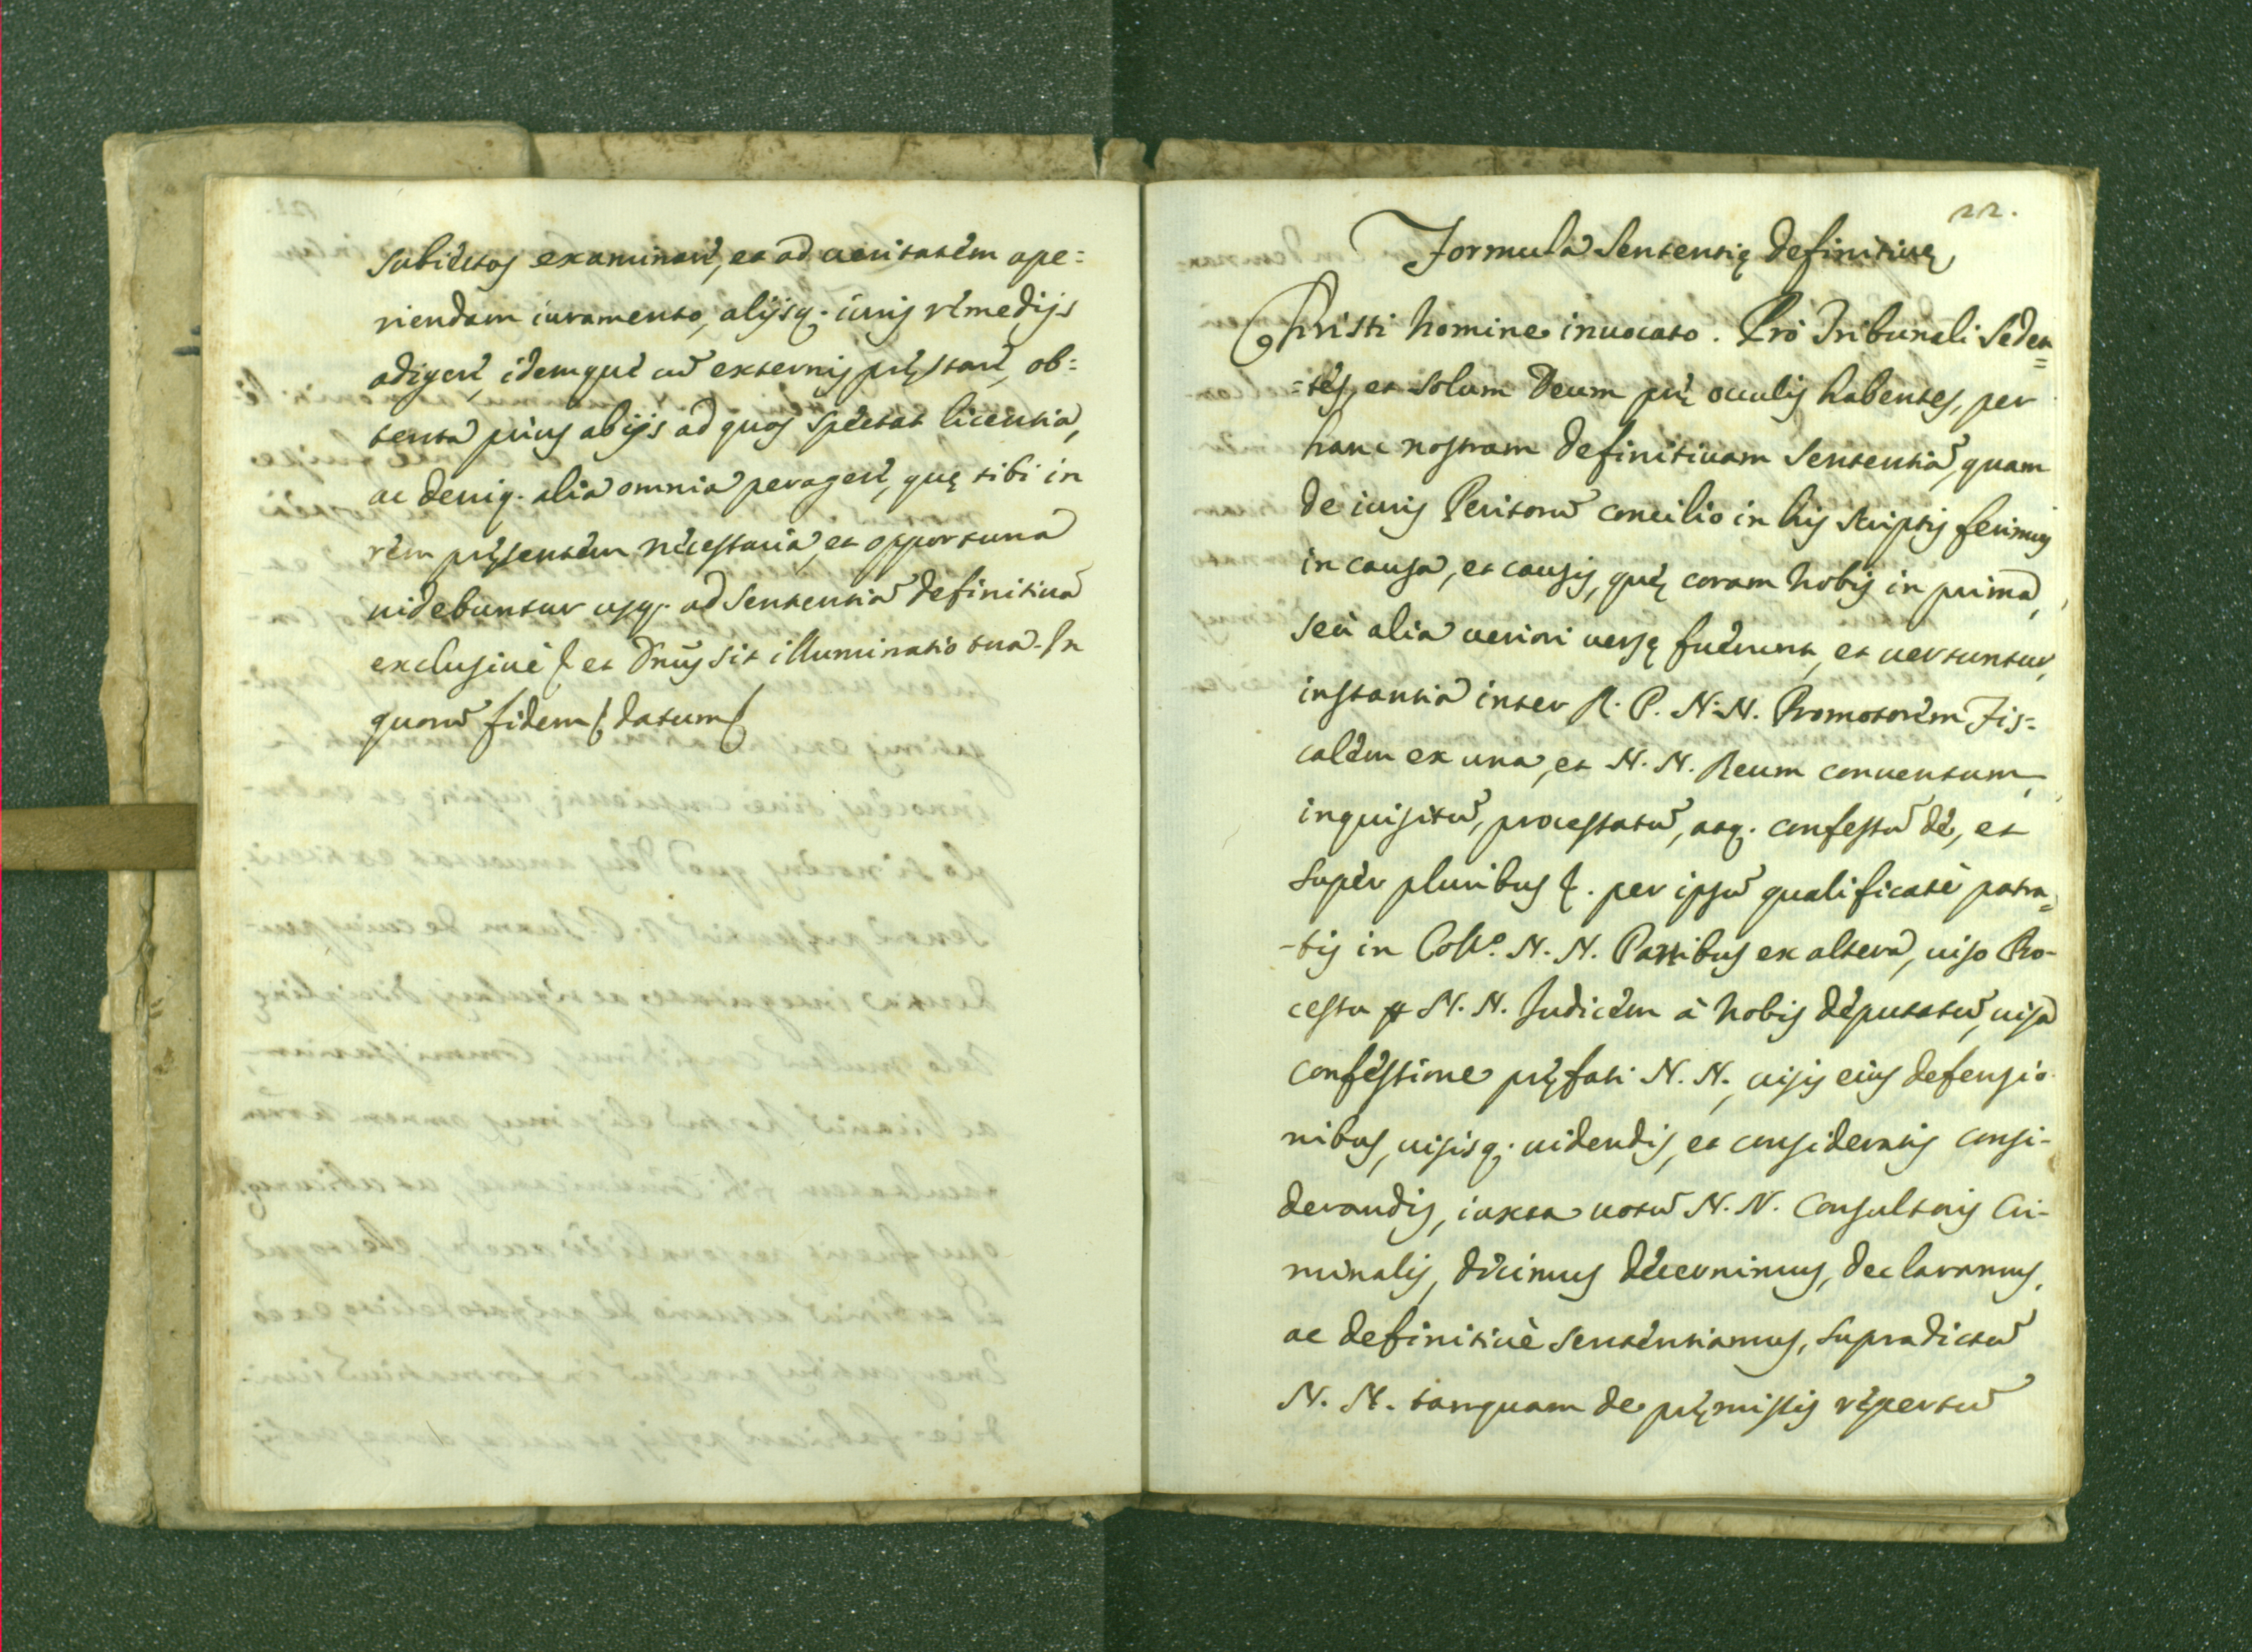 subiectos examinare, et ad ueritatem ape=
riendam iuramento, alijsq. iuris remedijs
adigere, idemque cũ externis pręstare, ob=
tenta prius ab ijs ad quos spectat licentia,
ac deniq. alia omnia peragere, quę tibi in
rem pręsentem necessaria, et opportuna
uidebuntur usq. ad sententiã definitiuã
exclusiuè &. et Dñus sit illuminatio tua. In
quorũ fidem &. datum &.
22.
Formula Sententię definitiuę
Christi Nomine inuocato. Prò Tribunali Seden=
=tes, et solum Deum prę occulis habentes, per
hanc nostram definitiuam Sententiã, quam
de iuris Peritorũ concilio in his scriptis ferimus
in causa, et causis, quę coram Nobis in prima,
seù alia ueriori uersę fuerunt, et uertuntur,
instantia inter R. P. N. N. Promotorem Fis=
calem ex una, et N. N. Reum conuentum,
inquisitũ, processatũ, atq. confessũ de, et
super pluribus &. per ipsũ qualificatè patra=
-tis in Coll.º N. N. Partibus ex altera, uiso Pro-
cessu ꝑ N. N. Judicem à Nobis deputatũ, uisa
confessione pręfati N. N., uisis eius defensio
nibus, uisisq. uidendis, et consideratis consi-
derandis, iuxta uotũ N. N. Consultoris Cri-
minalis, dicimus decernimus, declaramus,
ac definitiuè sententiamus, supradictũ
N. N. tanquam de pręmissis repertũ